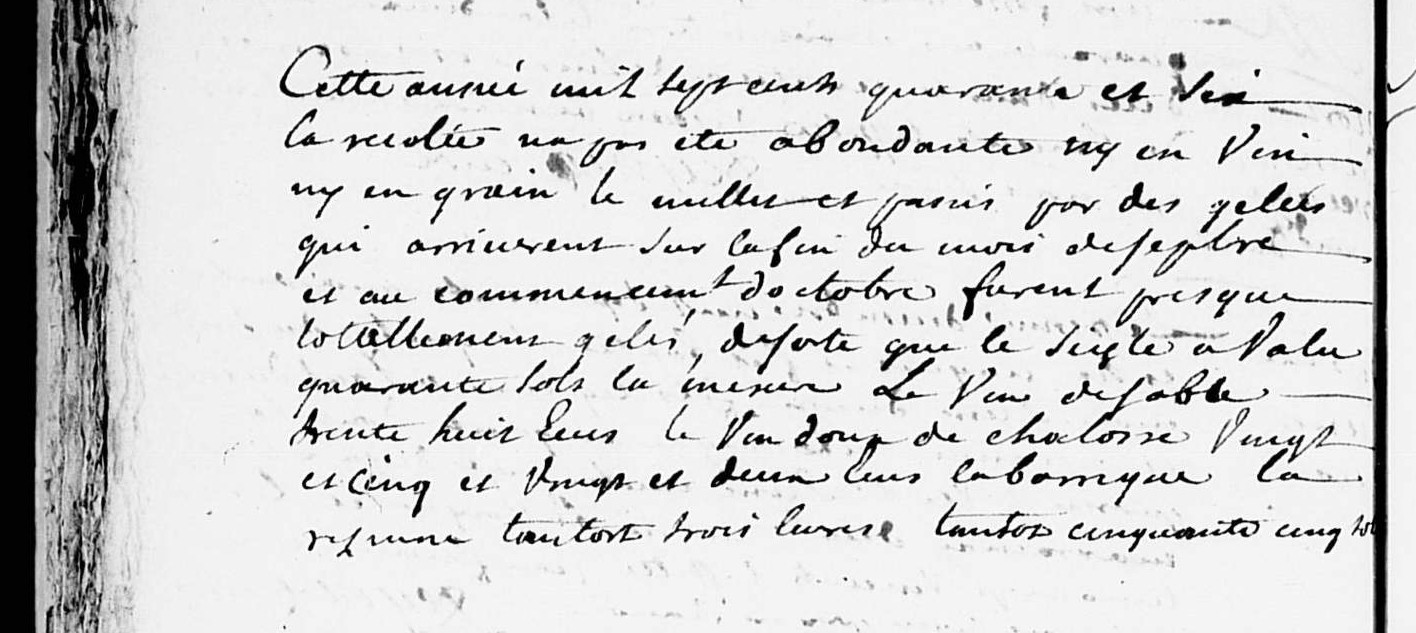 Cette année mil sept cents quarante et six
la recolte na pas ete abondante ny en Vin
ny en grain le millet et panis par des gelées
qui arriverent sur la fin du mois de sepbre
et au commencemt doctobre furent presque
tottellement gelés, de sorte que le seigle a valu
quarante sols la mesure Le Vin de sable
trente huit Ecus le Vin doux de chalosse Vingt
et Cinq et Vingt et deux Ecus la barrique la
resinne tantost trois livres tantost cinquante cinq sols